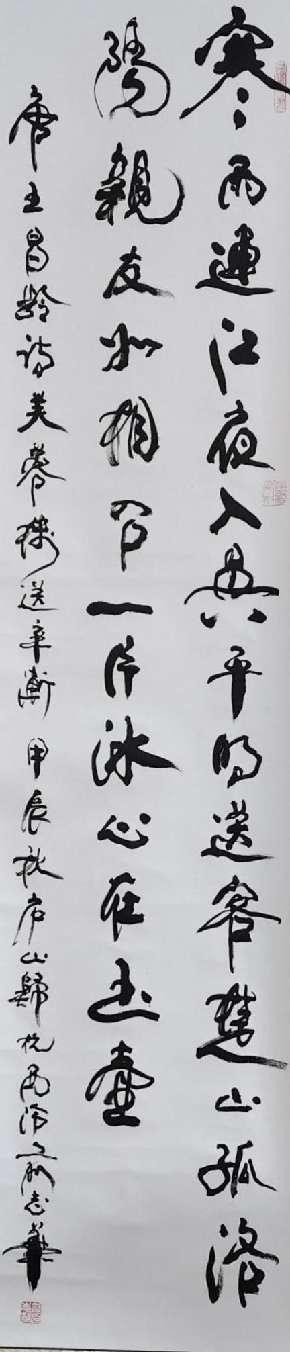 寒雨連江夜入吳平明送客楚山孤洛
陽親友如相問一片冰心在玉壺
唐王昌齡詩芙蓉樓送辛漸 甲辰秋山歸杭志華